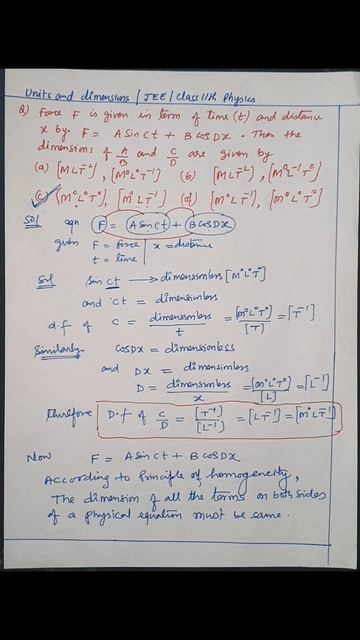 Units and dimensions / JEE / Class 11th Physics
Q) Force F is given in term of time (t) and distance
x by F = A Sin Ct + B Cos Dx. Then the
dimensions of A/B and C/D are given by
(a) [MLT⁻²], [M⁰L⁰T⁻¹] (b) [MLT⁻²], [M⁰L⁻¹T⁰]
(c) [M⁰L⁰T⁰], [M⁰LT⁻¹] (d) [M⁰LT⁻¹], [M⁰L⁰T⁰]
Sol eqn F = A Sin Ct + B Cos Dx
given F = force | x = distance
t = time
Sol Sin ct → dimensionless [M⁰L⁰T⁰]
and ct = dimensionless
d.f of C = dimensionless/t = [M⁰L⁰T⁰]/[T] = [T⁻¹]
Similarly Cos Dx = dimensionless
and Dx = dimensionless
D = dimensionless/x = [M⁰L⁰T⁰]/[L] = [L⁻¹]
therefore D.f of C/D = [T⁻¹]/[L⁻¹] = [LT⁻¹] = [M⁰LT⁻¹]
Now F = A Sin Ct + B Cos Dx
According to Principle of homogeneity,
The dimension of all the terms on both sides
of a physical equation must be same.